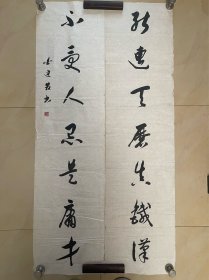 能遭天磨真鐵漢
不受人忌是庸才